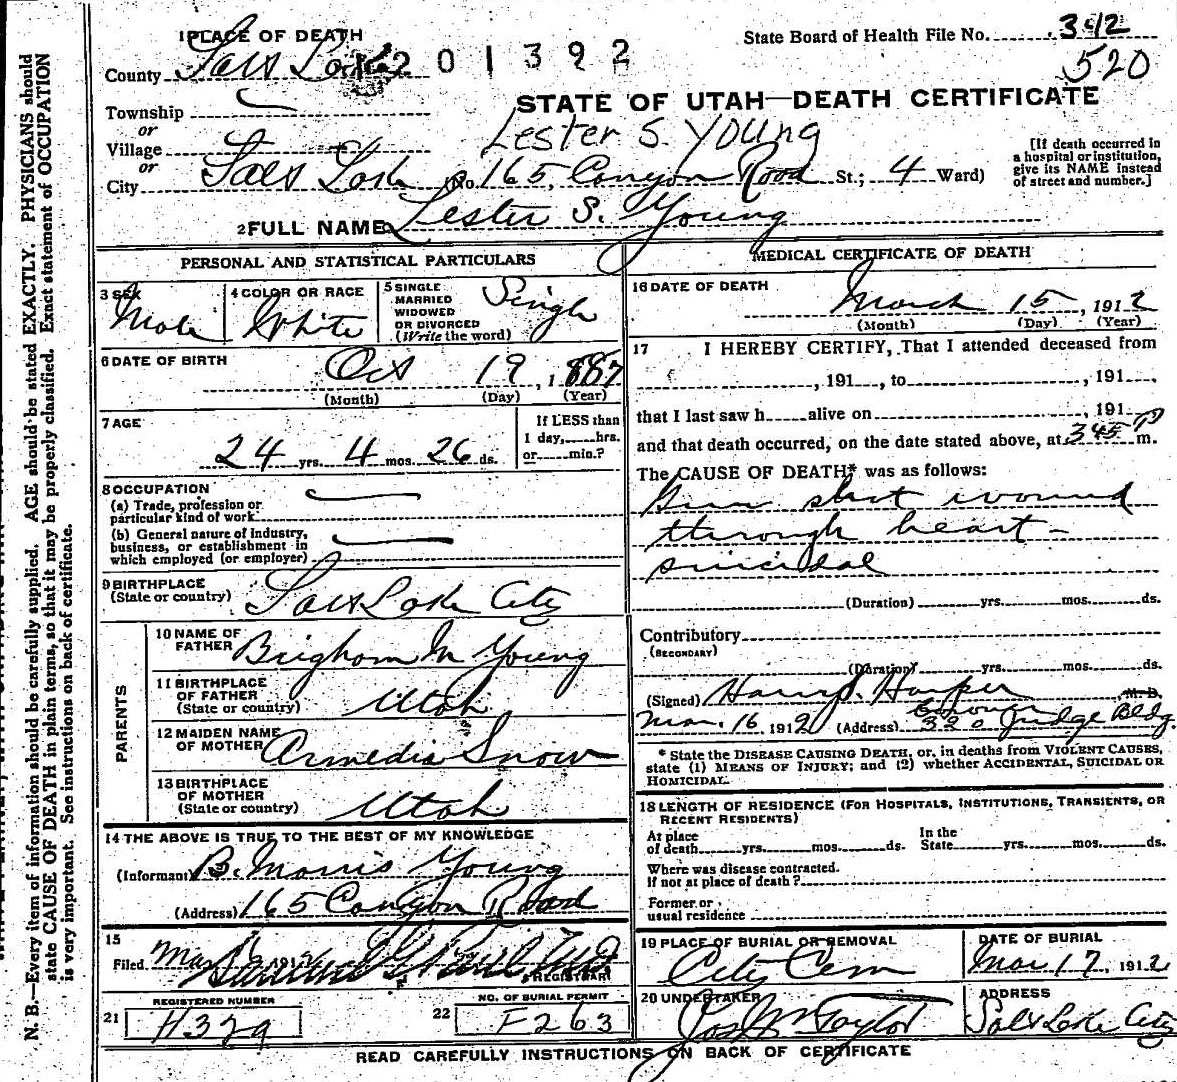 1 PLACE OF DEATH
State Board of Health File No. 342
County Salt Lake 201392
520
STATE OF UTAH—DEATH CERTIFICATE
Township
or
Lester S. Young
Village
or
City Salt Lake No. 165, Canyon Road St.; 4 Ward)
[If death occurred in
a hospital or institution,
give its NAME instead
of street and number.]
2 FULL NAME Lester S. Young
PERSONAL AND STATISTICAL PARTICULARS
3 SEX
Male
4 COLOR OR RACE
White
5 SINGLE
MARRIED
WIDOWED
OR DIVORCED
(Write the word)
Single
6 DATE OF BIRTH
Oct 19, 1887
(Month) (Day) (Year)
7 AGE
24 yrs. 4 mos. 26 ds.
If LESS than
1 day, hrs.
or min.?
8 OCCUPATION
(a) Trade, profession or
particular kind of work
(b) General nature of Industry,
business, or establishment in
which employed (or employer)
9 BIRTHPLACE
(State or country) Salt Lake City
PARENTS
10 NAME OF
FATHER Brigham M Young
11 BIRTHPLACE
OF FATHER
(State or country) Utah
12 MAIDEN NAME
OF MOTHER Armedia Snow
13 BIRTHPLACE
OF MOTHER
(State or country) Utah
14 THE ABOVE IS TRUE TO THE BEST OF MY KNOWLEDGE
(Informant) B. Morris Young
(Address) 165 Canyon Road
15
Filed Mar 1912
REGISTRAR
REGISTERED NUMBER
21 H329
NO. OF BURIAL PERMIT
22 F263
MEDICAL CERTIFICATE OF DEATH
16 DATE OF DEATH
March 15, 1912
(Month) (Day) (Year)
17 I HEREBY CERTIFY, That I attended deceased from
, 191 , to , 191 .
that I last saw h alive on , 191
and that death occurred, on the date stated above, at 345 P m.
The CAUSE OF DEATH* was as follows:
Gun shot wound
through heart -
suicidal
(Duration) yrs. mos. ds.
Contributory
(SECONDARY)
(Duration) yrs. mos. ds.
(Signed) Harry S. Harper M. D.
Coroner
Mar. 16 1912 (Address) 320 Judge Bldg
* State the DISEASE CAUSING DEATH, or, in deaths from VIOLENT CAUSES,
state (1) MEANS OF INJURY; and (2) whether ACCIDENTAL, SUICIDAL OR
HOMICIDAL.
18 LENGTH OF RESIDENCE (FOR HOSPITALS, INSTITUTIONS, TRANSIENTS, OR
RECENT RESIDENTS)
At place
of death yrs. mos. ds.
In the
State yrs. mos. ds.
Where was disease contracted.
If not at place of death?
Former or
usual residence
19 PLACE OF BURIAL OR REMOVAL
City Cem
DATE OF BURIAL
Mar 17, 1912
20 UNDERTAKER
Jos Wm Taylor
ADDRESS
Salt Lake City
READ CAREFULLY INSTRUCTIONS ON BACK OF CERTIFICATE
N. B.—Every item of information should be carefully supplied. AGE should be stated EXACTLY. PHYSICIANS should
state CAUSE OF DEATH in plain terms, so that it may be properly classified. Exact statement of OCCUPATION
is very important. See instructions on back of certificate.